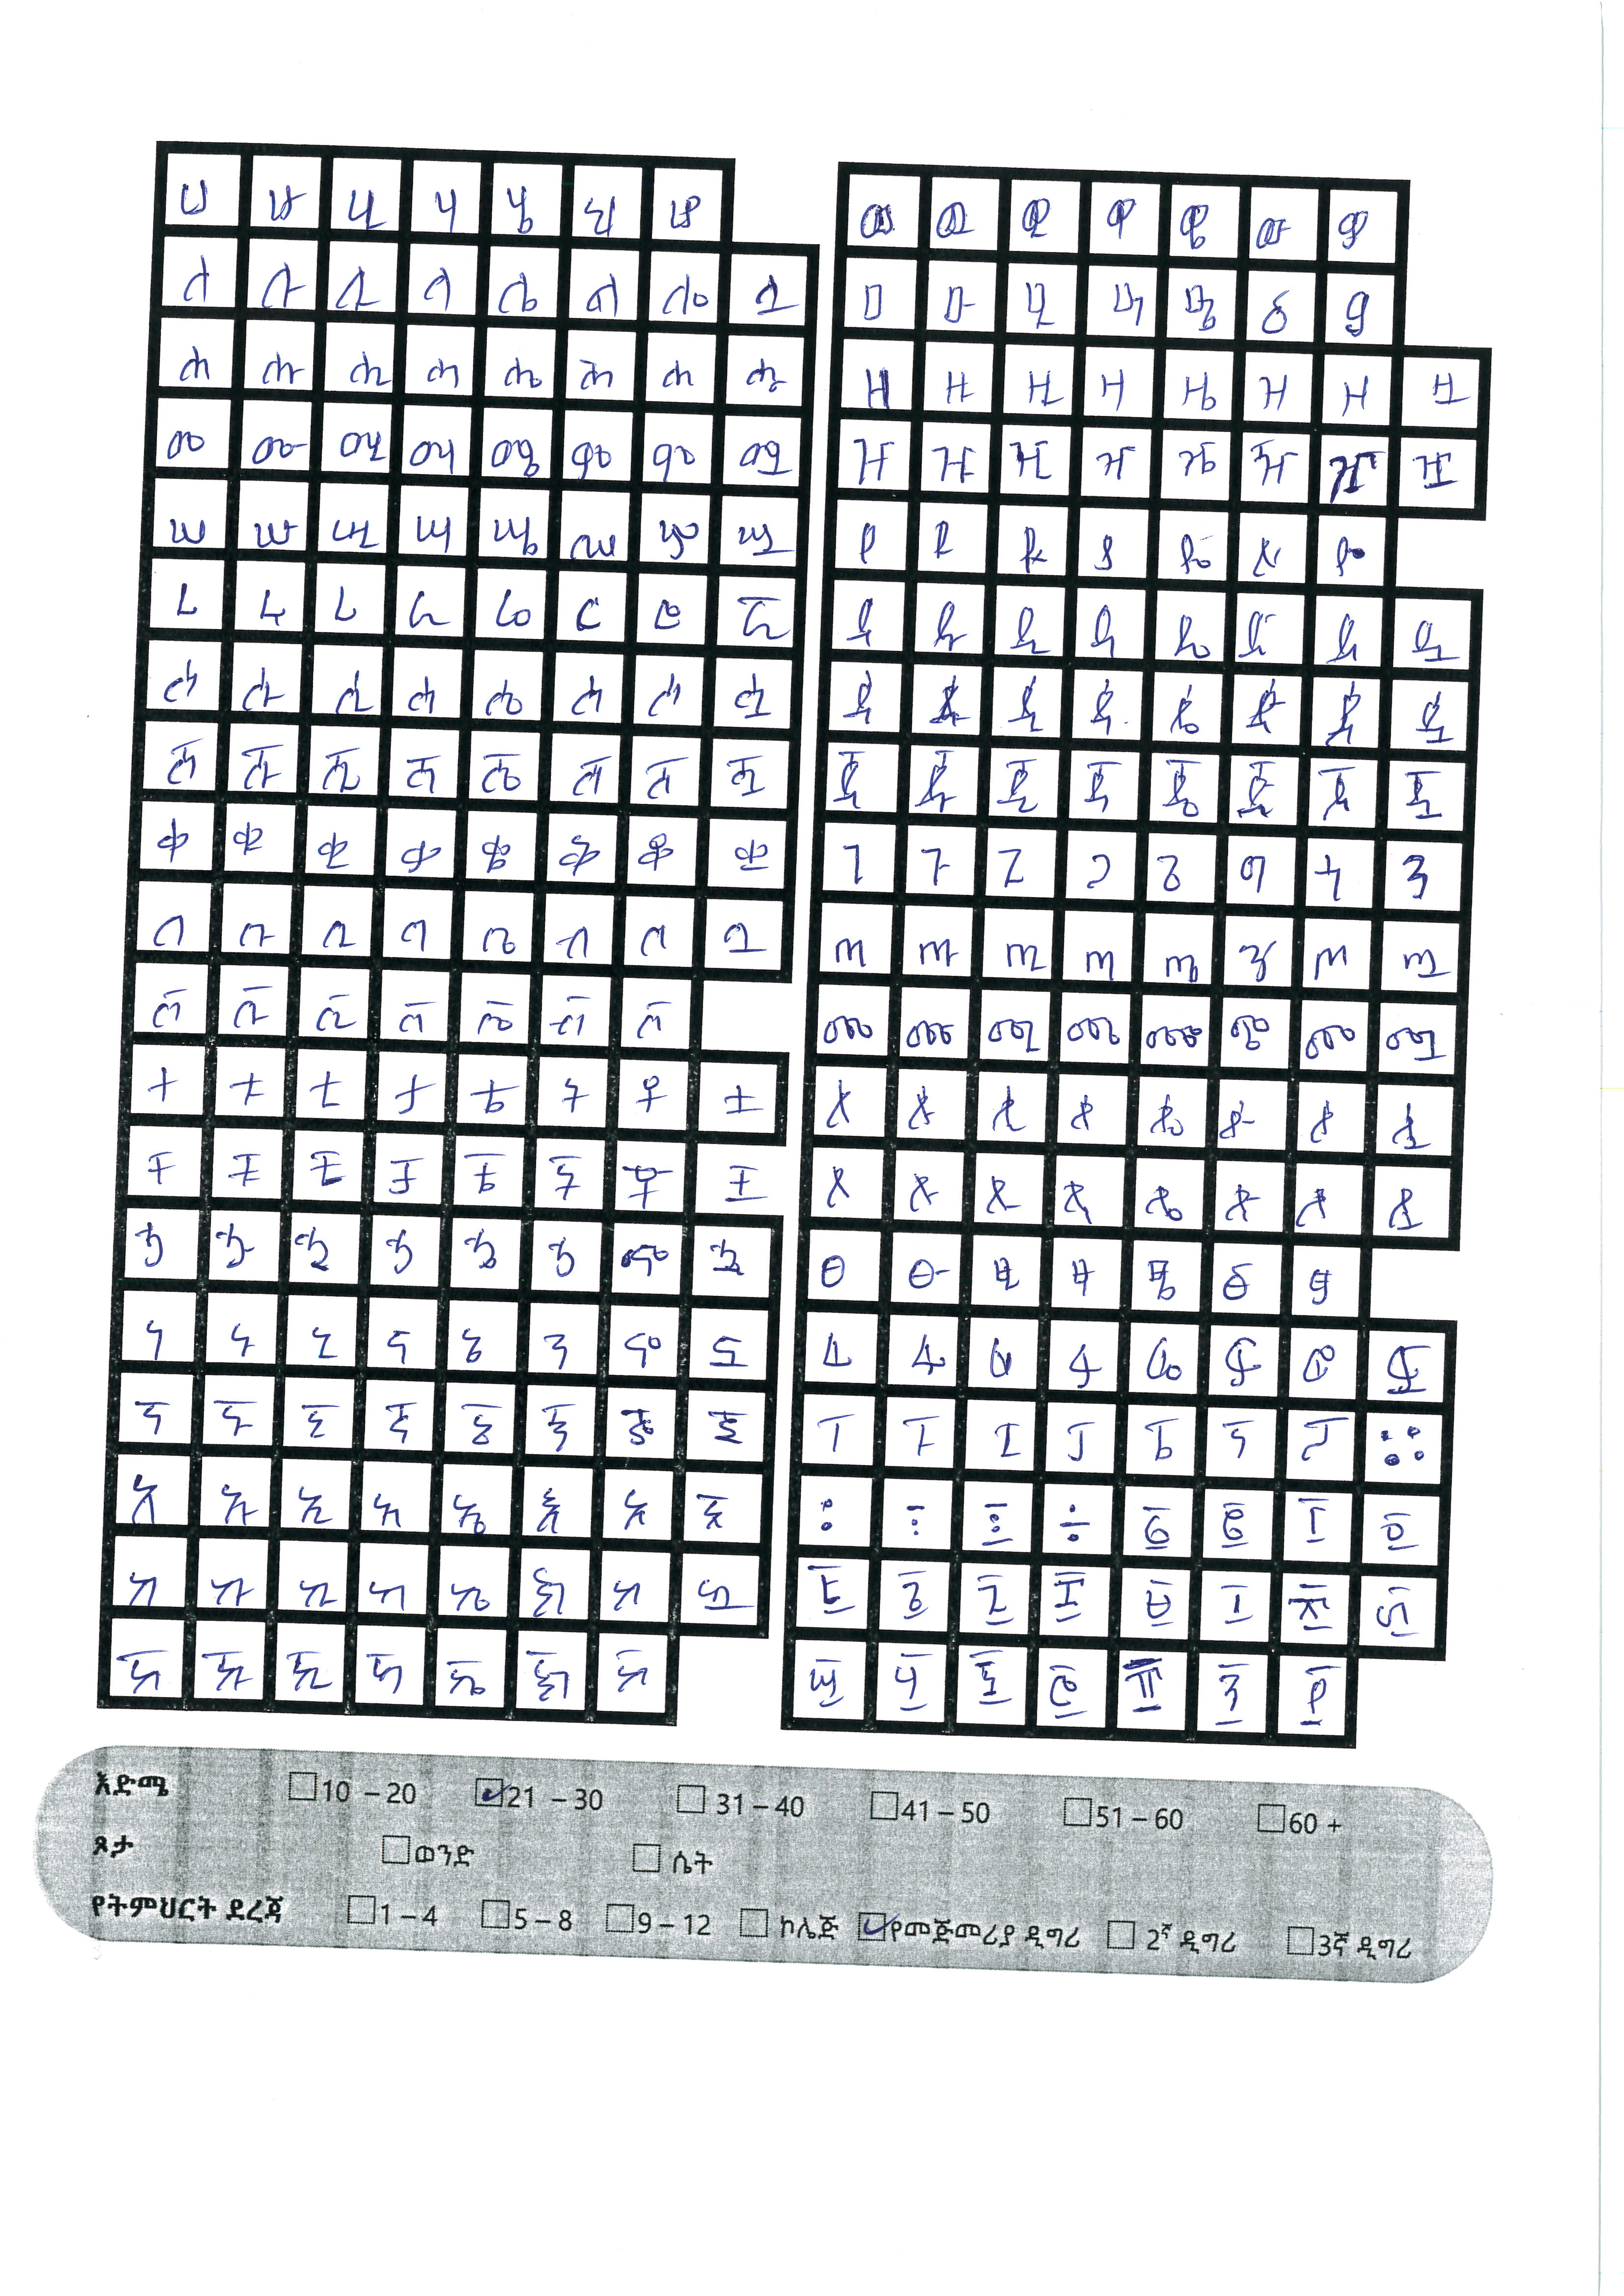 ሀ ሁ ሂ ሃ ሄ ህ ሆ
ለ ሉ ሊ ላ ሌ ል ሎ ሏ
ሐ ሑ ሒ ሓ ሔ ሕ ሖ ሗ
መ ሙ ሚ ማ ሜ ም ሞ ሟ
ሠ ሡ ሢ ሣ ሤ ሥ ሦ ሧ
ረ ሩ ሪ ራ ሬ ር ሮ ሯ
ሰ ሱ ሲ ሳ ሴ ስ ሶ ሷ
ሸ ሹ ሺ ሻ ሼ ሽ ሾ ሿ
ቀ ቁ ቂ ቃ ቄ ቅ ቆ ቋ
በ ቡ ቢ ባ ቤ ብ ቦ ቧ
ቨ ቩ ቪ ቫ ቬ ቭ ቮ
ተ ቱ ቲ ታ ቴ ት ቶ ቷ
ቸ ቹ ቺ ቻ ቼ ች ቾ ቿ
ኀ ኁ ኂ ኃ ኄ ኅ ኆ ኋ
ነ ኑ ኒ ና ኔ ን ኖ ኗ
ኘ ኙ ኚ ኛ ኜ ኝ ኞ ኟ
አ ኡ ኢ ኣ ኤ እ ኦ ኧ
ከ ኩ ኪ ካ ኬ ክ ኮ ኳ
ኸ ኹ ኺ ኻ ኼ ኽ ኾ
ወ ዉ ዊ ዋ ዌ ው ዎ
ዐ ዑ ዒ ዓ ዔ ዕ ዖ
ዘ ዙ ዚ ዛ ዜ ዝ ዞ ዟ
ዠ ዡ ዢ ዣ ዤ ዥ ዦ ዧ
የ ዩ ዪ ያ ዬ ይ ዮ
ደ ዱ ዲ ዳ ዴ ድ ዶ ዷ
ዸ ዹ ዺ ዻ ዼ ዽ ዾ ዿ
ጀ ጁ ጂ ጃ ጄ ጅ ጆ ጇ
ገ ጉ ጊ ጋ ጌ ግ ጎ ጓ
ጠ ጡ ጢ ጣ ጤ ጥ ጦ ጧ
ጨ ጩ ጪ ጫ ጬ ጭ ጮ ጯ
ጰ ጱ ጲ ጳ ጴ ጵ ጶ ጷ
ጸ ጹ ጺ ጻ ጼ ጽ ጾ ጿ
ፀ ፁ ፂ ፃ ፄ ፅ ፆ
ፈ ፉ ፊ ፋ ፌ ፍ ፎ ፏ
ፐ ፑ ፒ ፓ ፔ ፕ ፖ ።
፡ ፣ ፤ ÷ ፩ ፪ ፫ ፬
፭ ፮ ፯ ፰ ፱ ፲ ፳ ፴
፵ ፶ ፷ ፸ ፹ ፺ ፻
እድሜ 10 – 20 21 – 30 31 – 40 41 – 50 51 – 60 60 +
ጾታ ወንድ ሴት
የትምህርት ደረጃ 1 – 4 5 – 8 9 – 12 ኮሌጅ የመጅመሪያ ዲግሪ 2ኛ ዲግሪ 3ኛ ዲግሪ